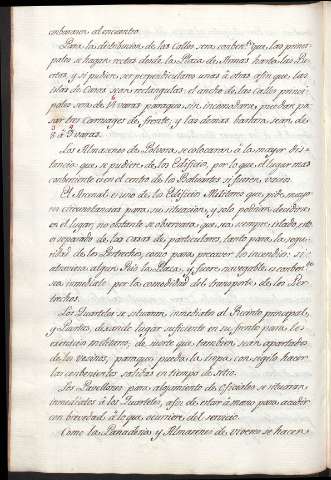 embarazen al encuentro.
Para la distribucion de las Calles sera conben.te que las princi-
pales se hagan rectas desde la Plaza de Armas hasta las Pu-
ertas, y si pudiere ser perpendiculares unas à otras afin que las
islas de Casas sean rectangulas: el ancho de las calles princi-
pales sera de 14 varas paraque sin incomodarse puedan pa-
sar tres Carruages de frente, y las demas bastara sean de
8 à 9 varas.
Los Almacenes de Polvora se colocaran à la mayor dis-
tancia que se pudiere de los Edificios, por lo que el lugar mas
conbeniente es en el centro de los Baluartes si fueren vacios.
El Arsenal es uno de los Edificios Militares que pide mayo-
res circunstancias para su situacion, y solo podran decidirse
en el lugar; no obstante se observara, que sea siempre aislado, esto
es separado de las Casas de particulares, tanto para la segu-
ridad de los Pertrechos, como para precaver los incendios: si
atravesara algun Rio la Plaza, y fuere navegable es conben.te
sea inmediato por la comodidad del transporte de los Per-
trechos.
Los Quarteles se situaran inmediatos al Recinto principal,
y Puertas, dexando lugar suficiente en su frente para los
exercicios militares; de suerte que tambien sean apartados
de los vecinos, paraque pueda la tropa con sigilo hacer
las conbenientes salidas en tiempo de sitio.
Los Pavellones para alojamiento de oficiales se situaran
inmediatos à los Quarteles, afin de estar à mano para acudir
con brevedad à lo que ocurriere del servicio.
Como las Panaderias y Almacenes de viveres se hacen